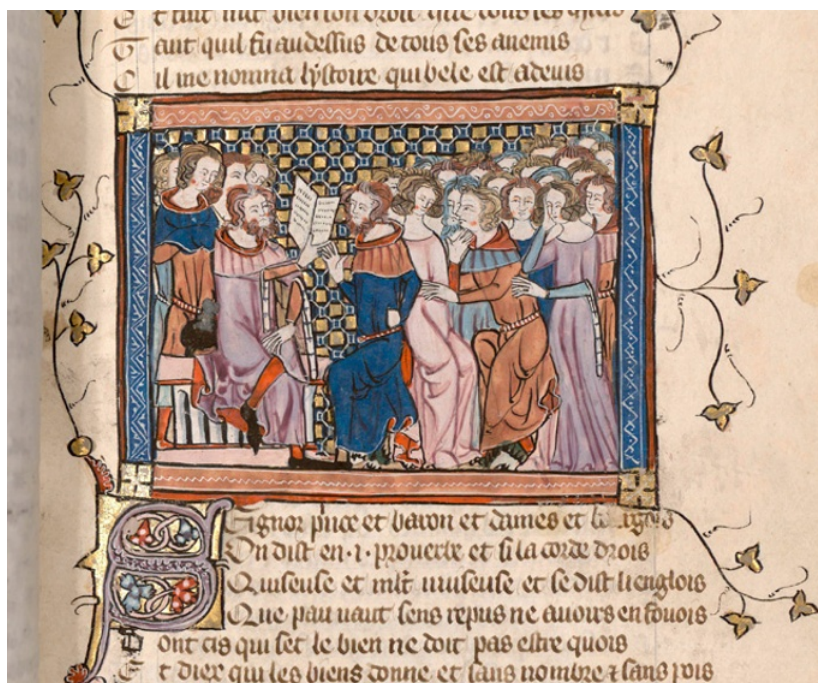 t tint mlt bien son droit que tous ses
T ant quil fu audessus de tous ses anemis
C il me nomma lystoire qui bele est a deuis
Signor prince et baron et dames et
On dist en .i. prouerbe et si lacorde drois
Quiseuse et mlt nuiseuse et se dist li englois
Que pau uaut sens repus ne auoirs en fouois
ont cis qui set le bien ne doit pas estre quois
t diex qui les biens donne et sans nombre ⁊ sans pois